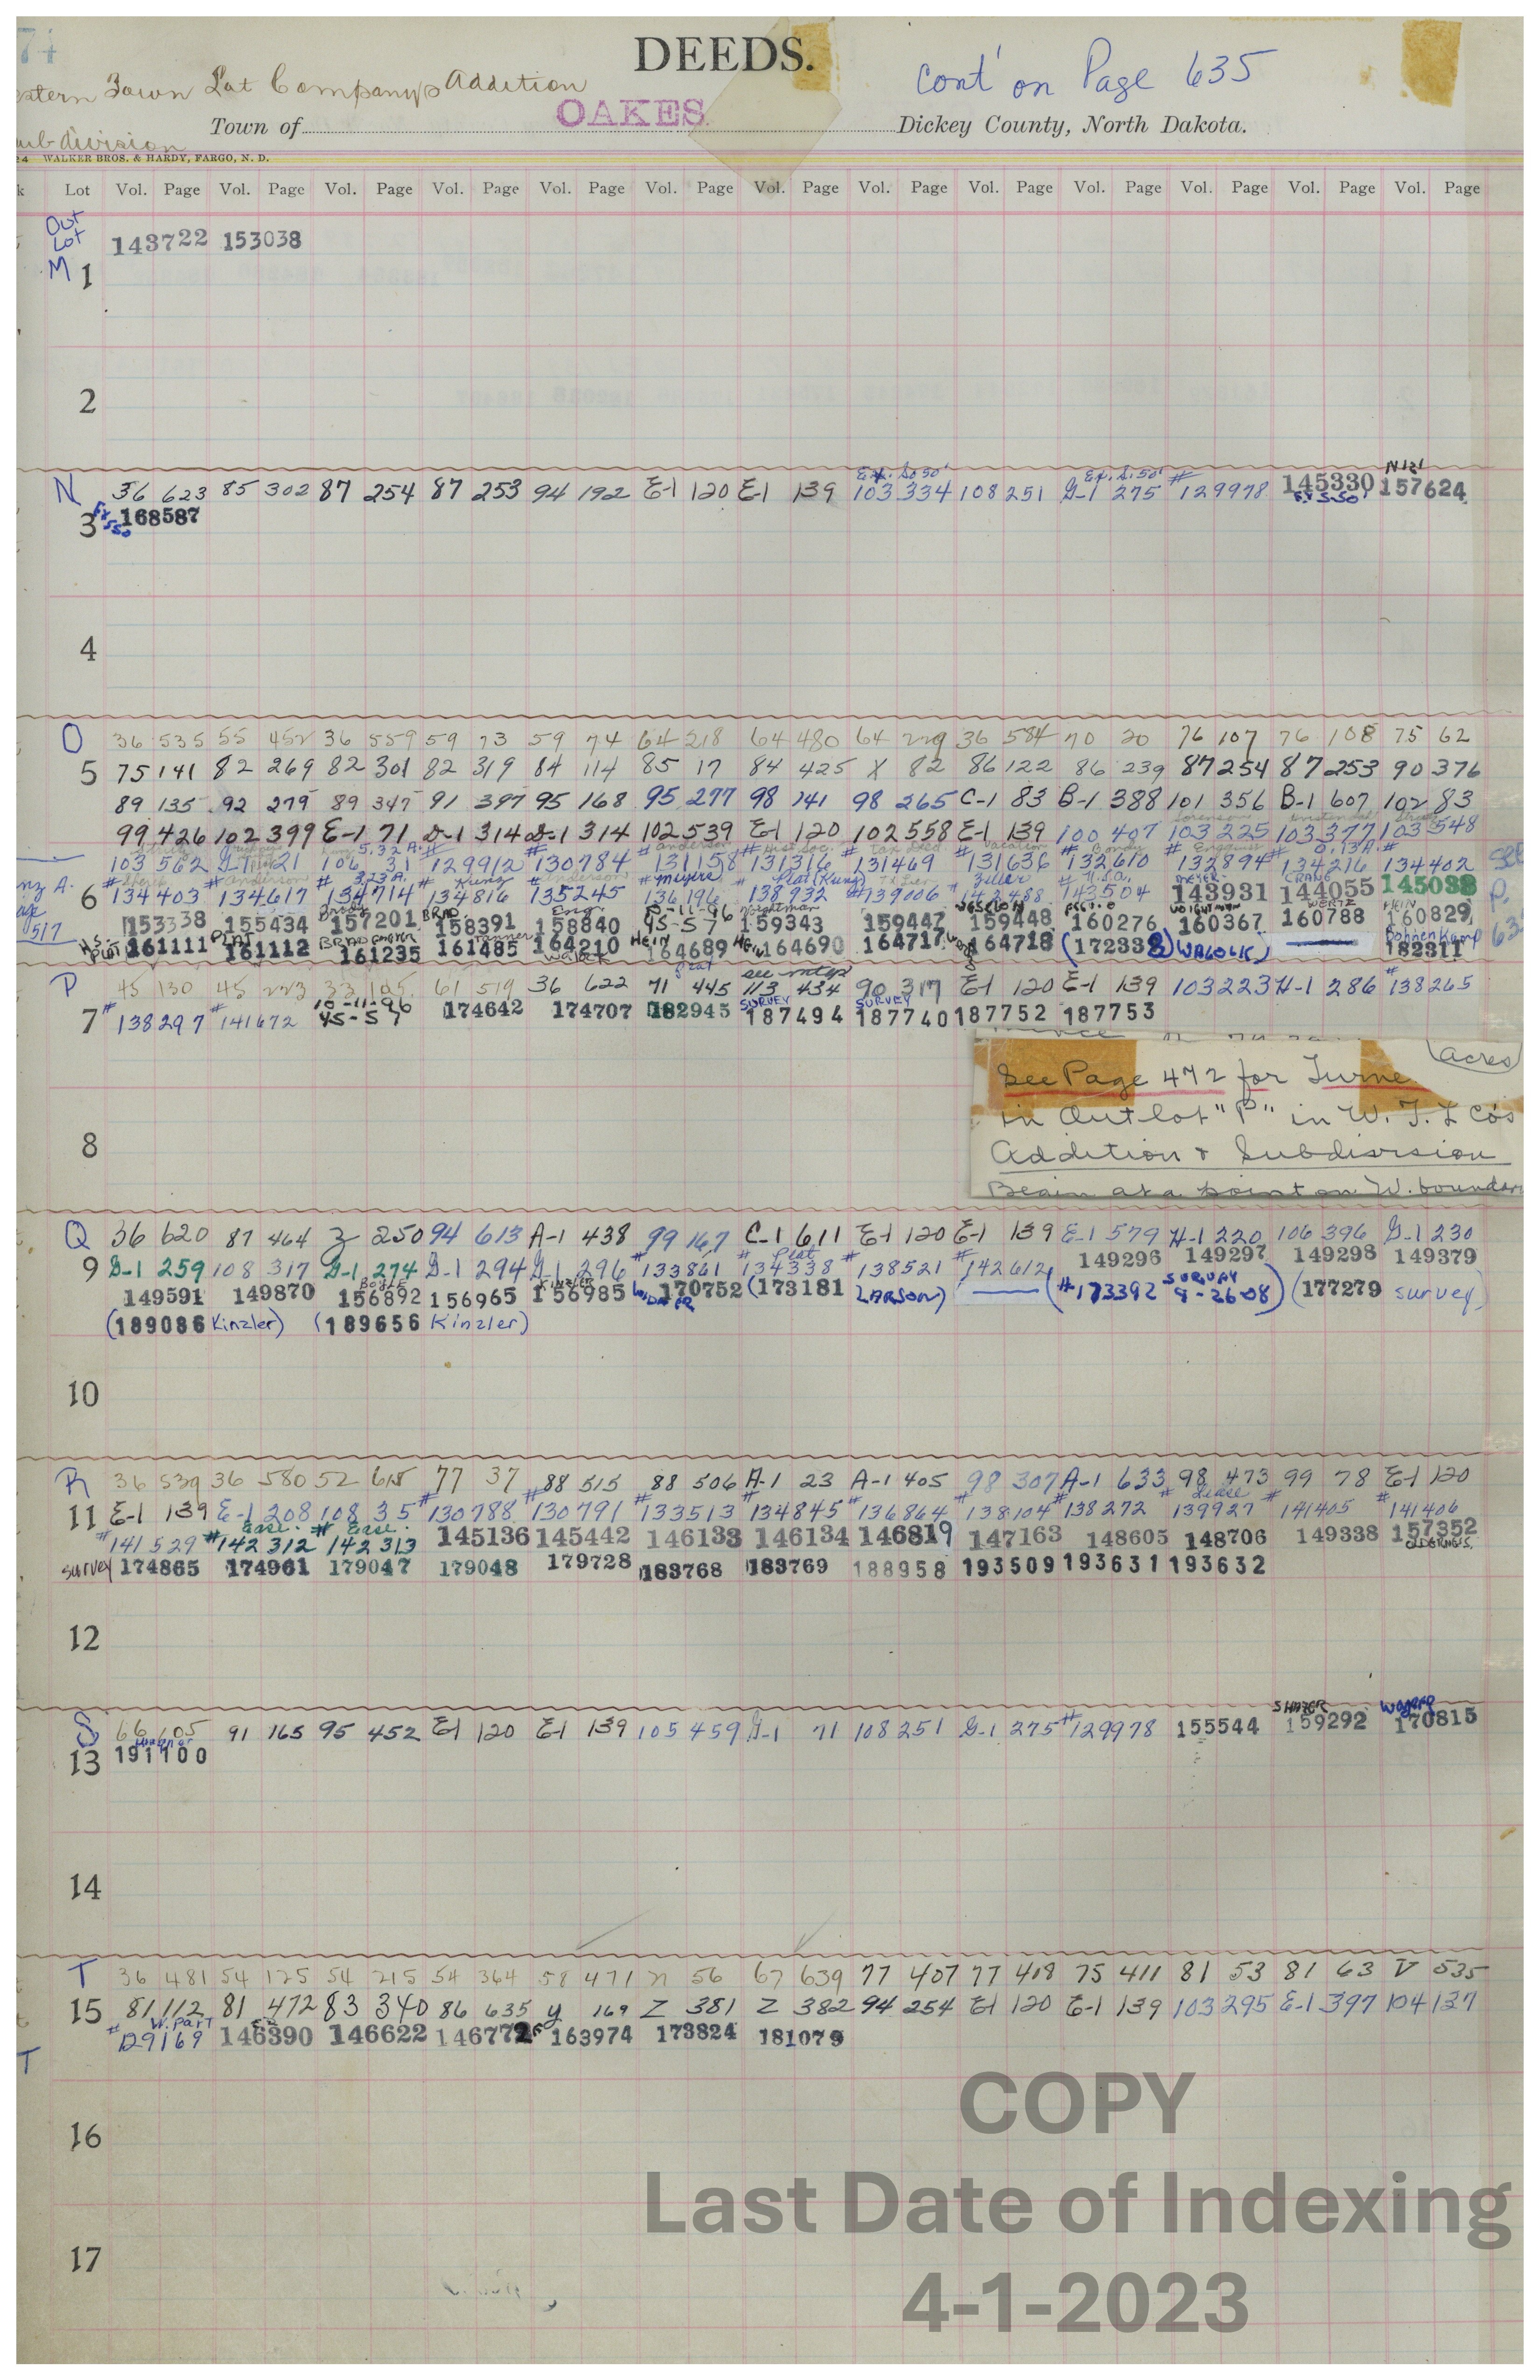 74
DEEDS.
Cont' on Page 635
estern Town Lot Company's Addition
OAKES
Town of Dickey County, North Dakota.
ub division
24 WALKER BROS. & HARDY, FARGO, N. D.
k Lot Vol. Page Vol. Page Vol. Page Vol. Page Vol. Page Vol. Page Vol. Page Vol. Page Vol. Page Vol. Page Vol. Page Vol. Page Vol. Page
Out
Lot 143722 153038
M 1
2
Ex. So 50' Ex. S. 50' N 121
N 36 623 85 302 87 254 87 253 94 192 E-1 120 E-1 139 103 334 108 251 G-1 275 #129978 145330 157624
Ex S 50'
3 168587
4
O 36 535 55 452 36 559 59 73 59 74 64 218 64 480 64 229 36 584 70 20 76 107 76 108 75 62
5 75 141 82 269 82 301 82 319 84 114 85 17 84 425 X 82 86 122 86 239 87 254 87 253 90 376
89 135 92 279 89 347 91 397 95 168 95 277 98 141 98 265 C-1 83 B-1 388 101 356 B-1 607 102 83
99 426 102 399 E-1 71 D-1 314 D-1 314 102 539 E-1 120 102 558 E-1 139 100 407 103 225 103 377 103 548
5.32 A. Anderson Hist. Soc. Tax Deed Vacation Bondy Enquist 0.13 A.
103 562 G-1 121 106 31 #129912 #130784 #131158 #131316 #131469 #131636 #132610 #132894 #134216 #134402
Anderson 3.23 A. Kunz Anderson Plat (Kunz) Ziller U.S.A. MEYER CRANE
6 #134403 #134617 #134714 #134816 #135245 #136196 #138932 #139006 #142488 #143504 143931 144055 145038
10-11-96 WERTZ HEIN
153338 155434 157201 158391 158840 45-57 159343 159447 159448 160276 160367 160788 160829
PLAT HEIN Bohnenkamp
161111 161112 161235 161485 164210 164689 164690 164717 164718 (172338) 182311
517
Plat see mtge
P 45 130 45 223 33 105 61 519 36 622 71 445 113 434 90 317 E-1 120 E-1 139 103 223 H-1 286 #138265
10-11-96 SURVEY SURVEY
7 #138297 #141672 45-57 174642 174707 182945 187494 187740 187752 187753
acres
See Page 472 for Turne
in Outlot "P" in W. T. L Co's
Addition & Subdivision
Begin at a point on W. boundar
8
Q 36 620 87 464 Z 250 94 613 A-1 438 99 167 C-1 611 E-1 120 E-1 139 E-1 579 H-1 220 106 396 G-1 230
Plat
9 G-1 259 108 317 G-1 274 G-1 294 G-1 296 #133861 #134338 #138521 #142612 149296 149297 149298 149379
149591 149870 156892 156965 156985 170752 (173181 LARSON) (#173392 SURVEY 8-26-08) (177279 survey)
(189086 Kinzler) (189656 Kinzler)
10
R 36 539 36 580 52 615 77 37 88 515 88 506 A-1 23 A-1 405 98 307 A-1 633 98 473 99 78 E-1 120
Lease
11 E-1 139 E-1 208 108 35 #130788 #130791 #133513 #134845 #136864 #138104 #138272 #139927 #141405 #141406
Ease. Ease.
#141529 #142312 #142313 145136 145442 146133 146134 146819 147163 148605 148706 149338 157352
survey 174865 174961 179047 179048 179728 183768 183769 188958 193509 193631 193632
12
SHAFER
S 66 605 91 165 95 452 E-1 120 E-1 139 105 459 G-1 71 108 251 G-1 275 #129978 155544 159292 170815
13 191100
14
T 36 481 54 125 54 215 54 364 58 471 n 56 67 639 77 407 77 418 75 411 81 53 81 63 V 535
15 81 112 81 472 83 340 86 635 y 169 Z 381 Z 382 94 254 E-1 120 E-1 139 103 295 E-1 397 104 137
W. part
#129169 146390 146622 146772 163974 173824 181079
T
16
COPY
Last Date of Indexing
17
4-1-2023